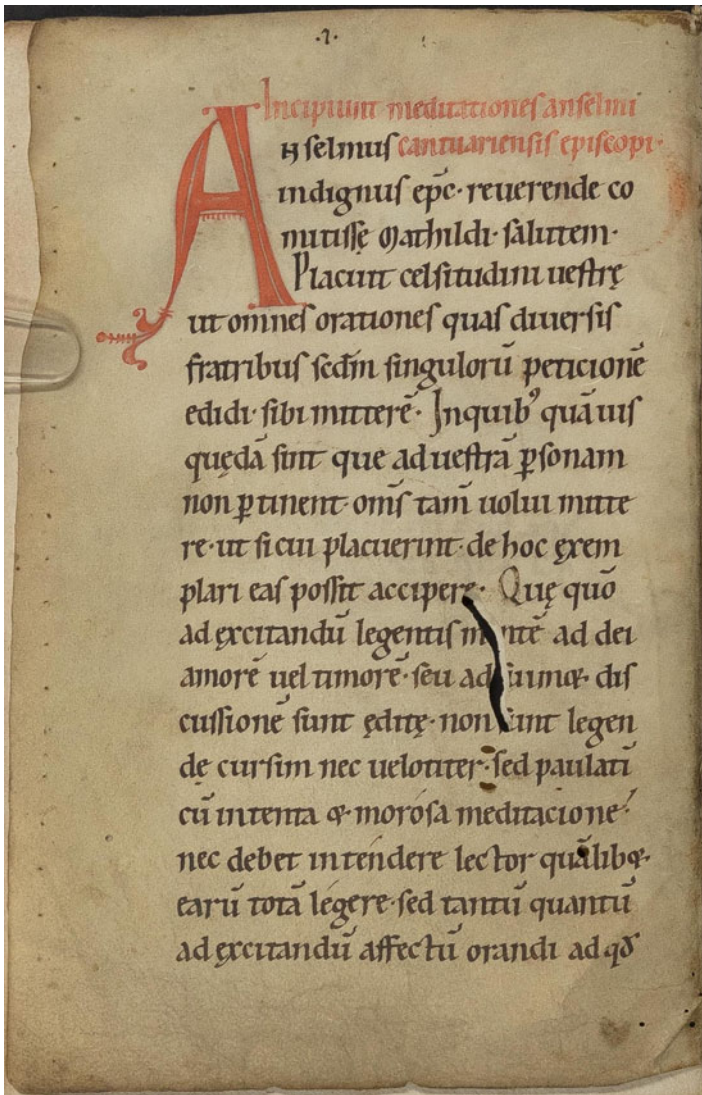 .1.
Incipiunt meditationes anselmi
Anselmus cantuariensis episcopi·
indignus ep̄c· reuerende co
mitisse Mathildi· salutem·
Placuit celsitudini uestrę
ut omnes orationes quas diuersis
fratribus scd̄m singulorū peticionē
edidi· sibi mitterē· Inquib᾽ quāuis
quędā sint que ad uestrā ꝑsonam
non ꝑtinent· om̄s tam̄ uolui mitte
re· ut si cui placuerint· de hoc ęxem
plari eas possit accipere· Quę quō
ad ęxcitandū legentis mentē ad dei
amorē uel timorē· seu ad suimæ dis
cussionē sunt ęditę· non sunt legen
dę cursim nec uelotiter· sed paulatī
cū intenta & morosa meditacione·
nec debet intendere lector quālibæ·
earū totā legere· sed tantū quantū
ad ęxcitandū affectū orandi ad qđ